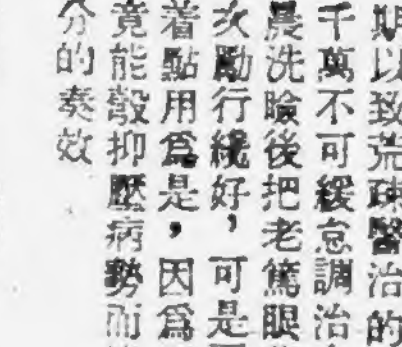 期以致荒疎醫治的
千萬不可緩怠調治
晨洗臉後把老篤眼
次勵行纔好，可是
着點用爲是，因爲
竟能彀抑壓病勢而
分的奏效